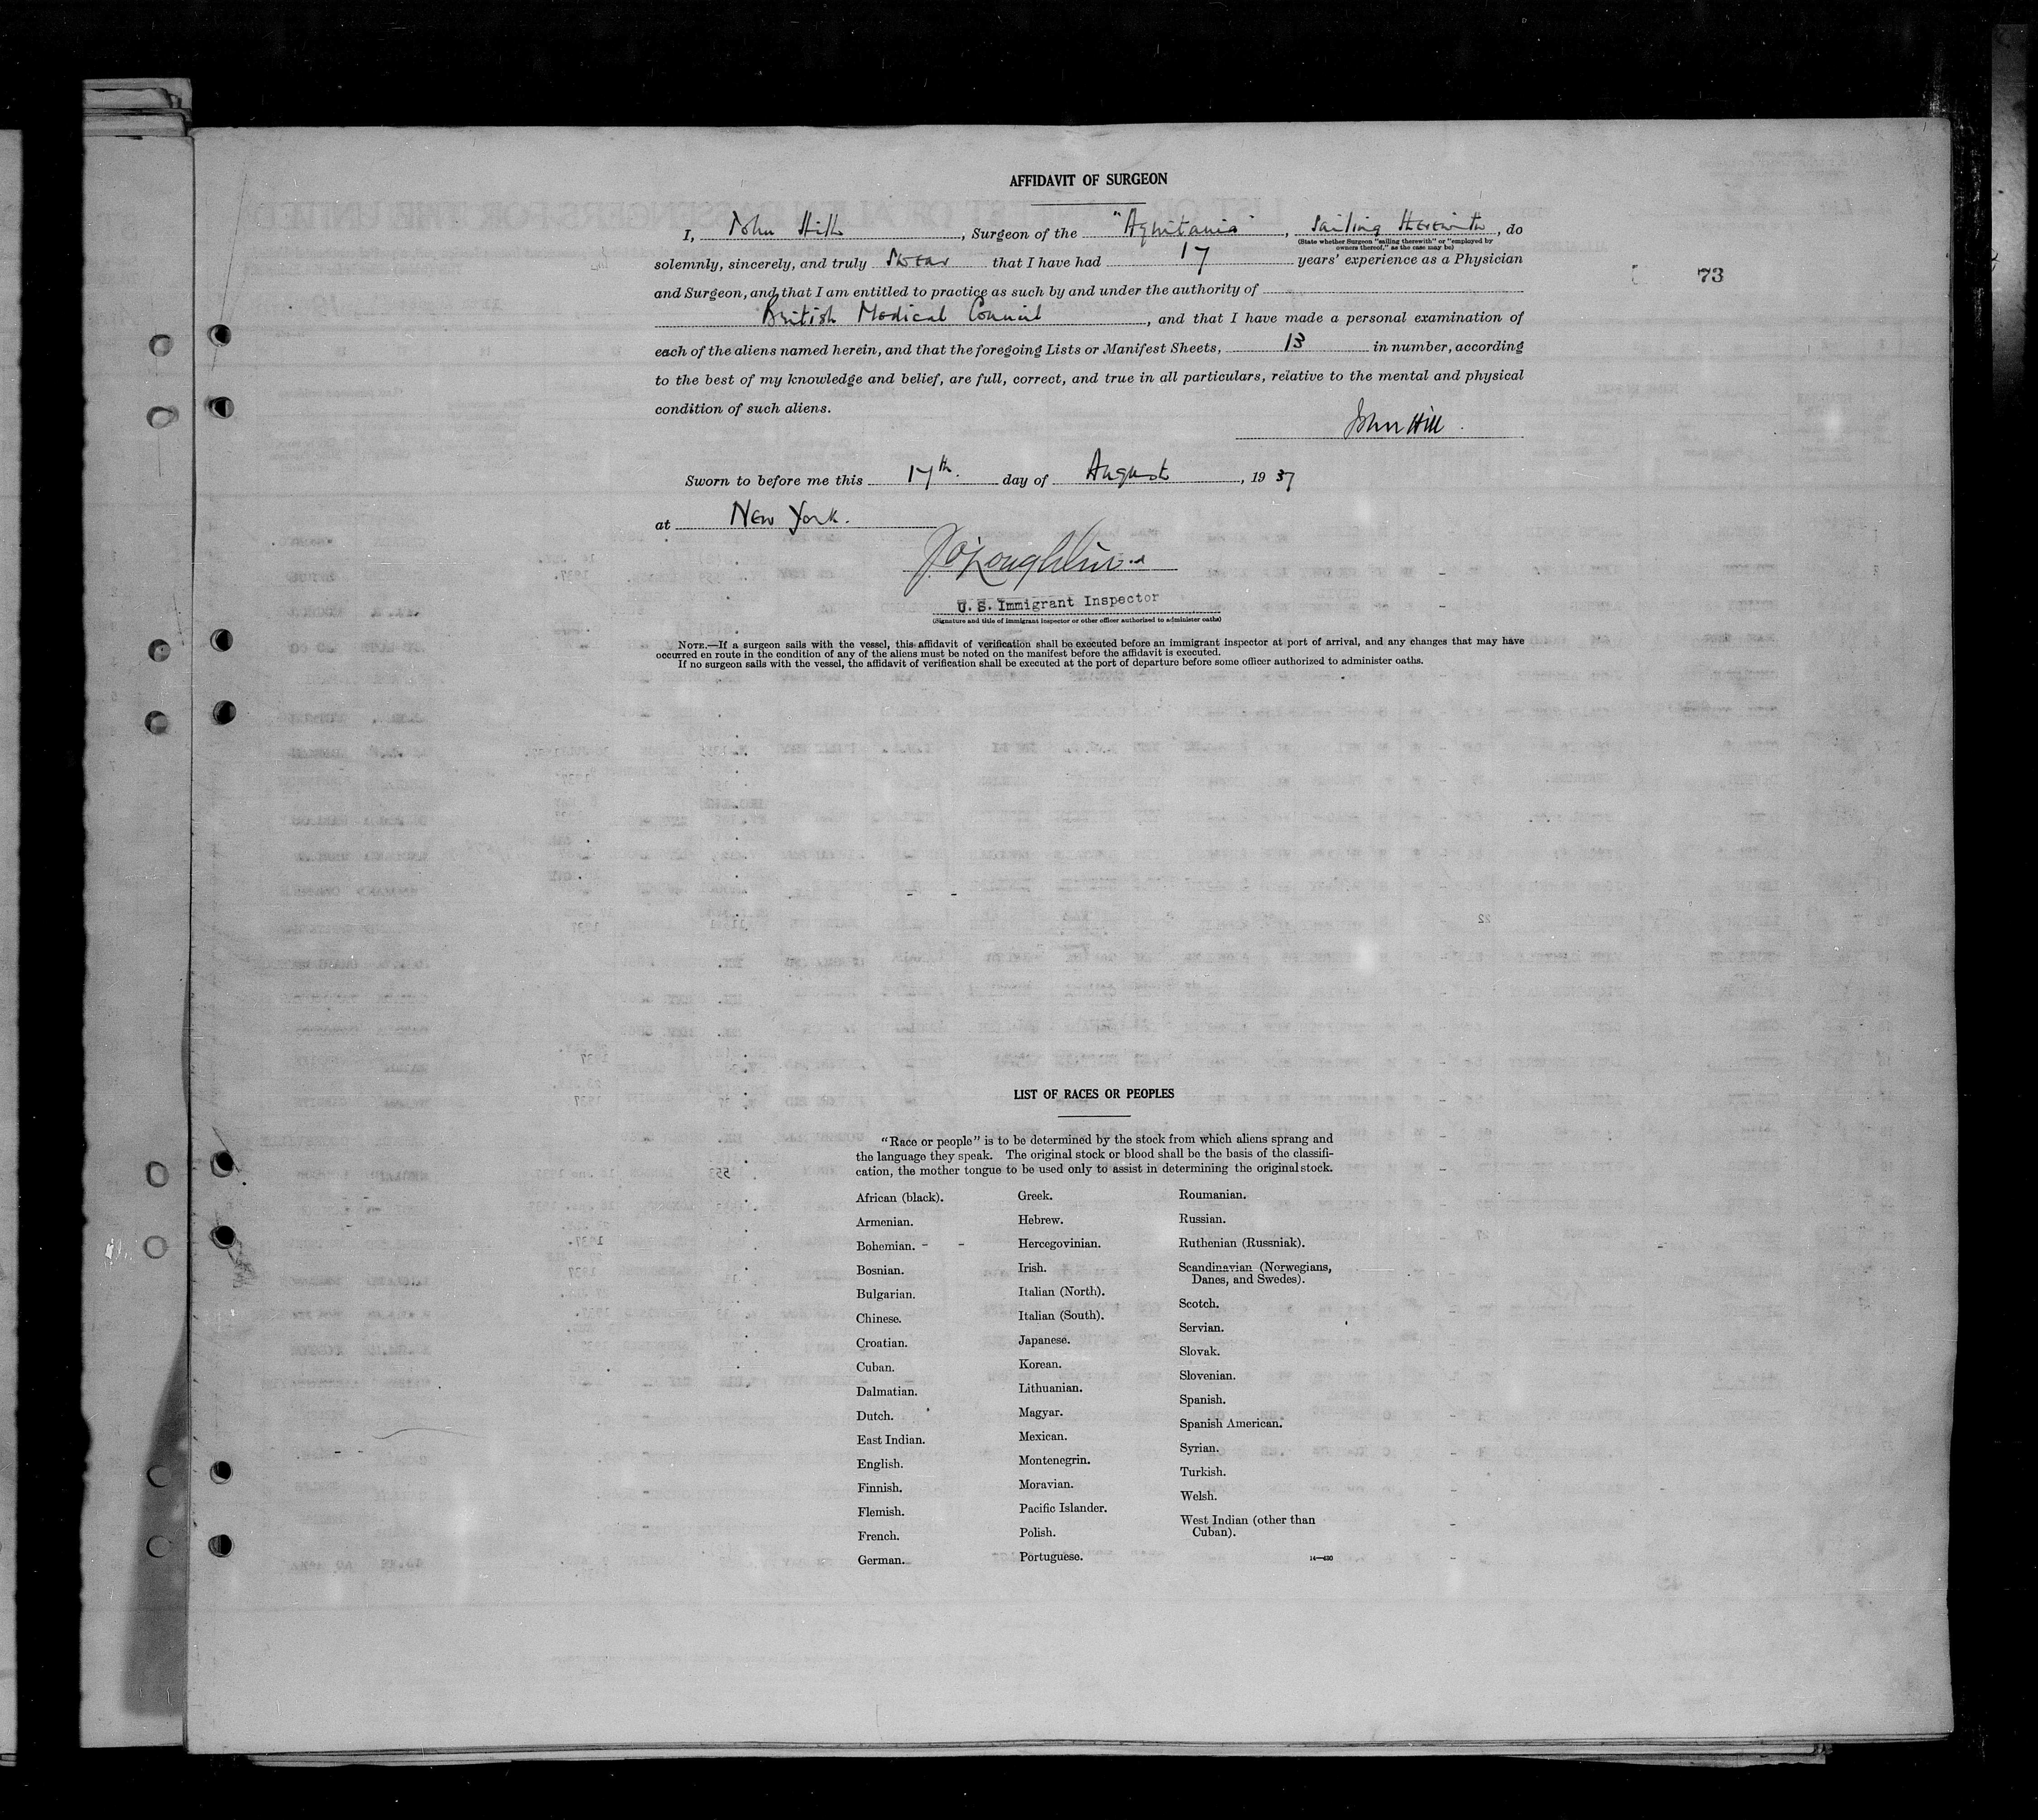 AFFIDAVIT OF SURGEON
I, John Hill, Surgeon of the "Aquitania", Sailing Therewith, do
(State whether Surgeon "sailing therewith" or "employed by
owners thereof," as the case may be)
solemnly, sincerely, and truly Swear that I have had 17 years' experience as a Physician
73
and Surgeon, and that I am entitled to practice as such by and under the authority of
British Medical Council, and that I have made a personal examination of
each of the aliens named herein, and that the foregoing Lists or Manifest Sheets, 13 in number, according
to the best of my knowledge and belief, are full, correct, and true in all particulars, relative to the mental and physical
condition of such aliens.
John Hill.
Sworn to before me this 17th. day of August, 1937
at New York.
J. O'Loughlin
U. S. Immigrant Inspector
(Signature and title of immigrant inspector or other officer authorized to administer oaths)
NOTE.—If a surgeon sails with the vessel, this affidavit of verification shall be executed before an immigrant inspector at port of arrival, and any changes that may have
occurred en route in the condition of any of the aliens must be noted on the manifest before the affidavit is executed.
If no surgeon sails with the vessel, the affidavit of verification shall be executed at the port of departure before some officer authorized to administer oaths.
LIST OF RACES OR PEOPLES
"Race or people" is to be determined by the stock from which aliens sprang and
the language they speak. The original stock or blood shall be the basis of the classifi-
cation, the mother tongue to be used only to assist in determining the original stock.
African (black).
Armenian.
Bohemian.
Bosnian.
Bulgarian.
Chinese.
Croatian.
Cuban.
Dalmatian.
Dutch.
East Indian.
English.
Finnish.
Flemish.
French.
German.
Greek.
Hebrew.
Hercegovinian.
Irish.
Italian (North).
Italian (South).
Japanese.
Korean.
Lithuanian.
Magyar.
Mexican.
Montenegrin.
Moravian.
Pacific Islander.
Polish.
Portuguese.
Roumanian.
Russian.
Ruthenian (Russniak).
Scandinavian (Norwegians,
Danes, and Swedes).
Scotch.
Servian.
Slovak.
Slovenian.
Spanish.
Spanish American.
Syrian.
Turkish.
Welsh.
West Indian (other than
Cuban).
14—430